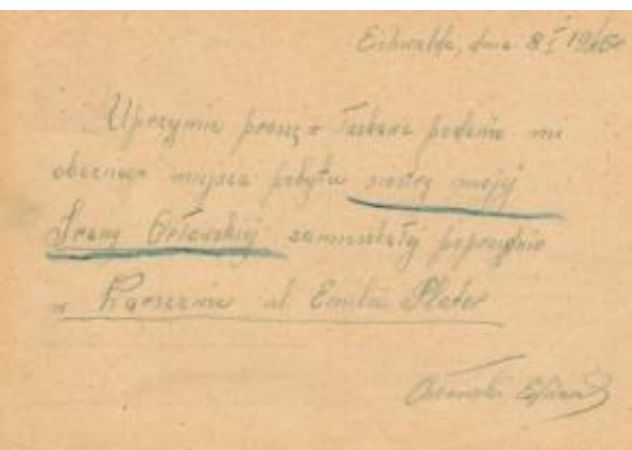 Eichwalde, dnia 8 I 1945r
Uprzejmie proszę o łaskawe podanie mi
obecnego miejsca pobytu siostry mojej
Ireny Orłowskiej zamieszkałej poprzednio
w Warszawie ul. Emilii Plater